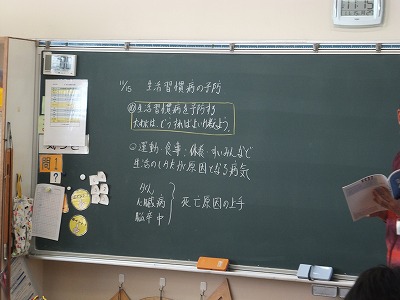 11/15 生活習慣病の予防
め 生活習慣病を予防する
ためには、どうすればよいか考えよう。
○運動・食事・休養・すいみんなど
生活のしかたが原因となる病気
がん
心臓病
脳卒中
死亡原因の上手
問 1
?
11:15